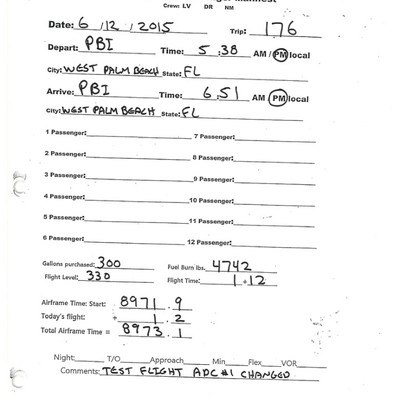 Crew: LV DR NM
Date: 6 / 12 / 2015 Trip: 176
Depart: PBI Time: 5 :38 AM / PM local
City: WEST PALM BEACH State: FL
Arrive: PBI Time: 6 :51 AM PM local
City: WEST PALM BEACH State: FL
1 Passenger: 7 Passenger:
2 Passenger: 8 Passenger:
3 Passenger: 9 Passenger:
4 Passenger: 10 Passenger:
5 Passenger: 11 Passenger:
6 Passenger: 12 Passenger:
Gallons purchased: 300 Fuel Burn lbs. 4742
Flight Level: 330 Flight Time: 1 + 12
Airframe Time: Start: 8971 . 9
Today's flight: + 1 . 2
Total Airframe Time = 8973 . 1
Night: T/O Approach Min Flex VOR
Comments: TEST FLIGHT ADC #1 CHANGED